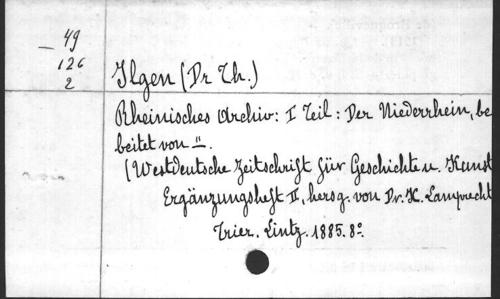 49
126
2
Ilgen (Dr Th.)
Rheinisches Archiv: I Teil: Der Niederrhein, be
beitet von ".
(Westdeutsche Zeitschrift für Geschichte u. Kunst
Ergänzungsheft II, hersg. von Dr. K. Lamprecht
Trier. Lintz. 1885. 8°.